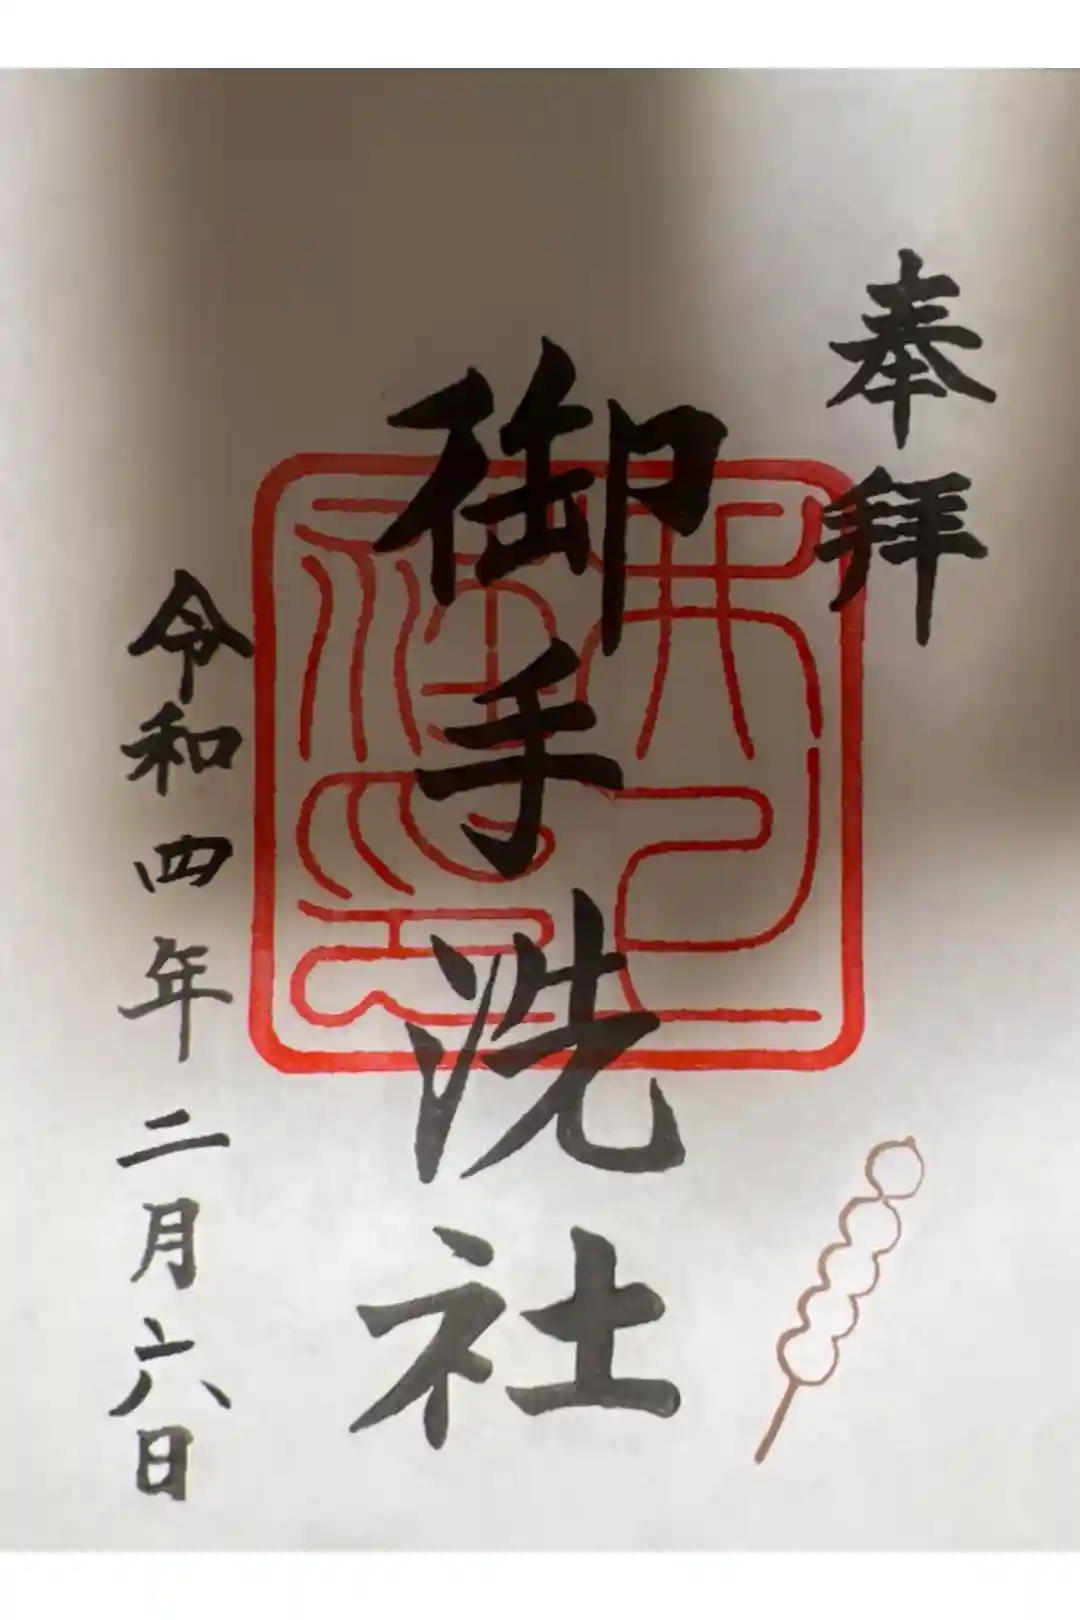 奉拝
御手洗社
令和四年二月六日